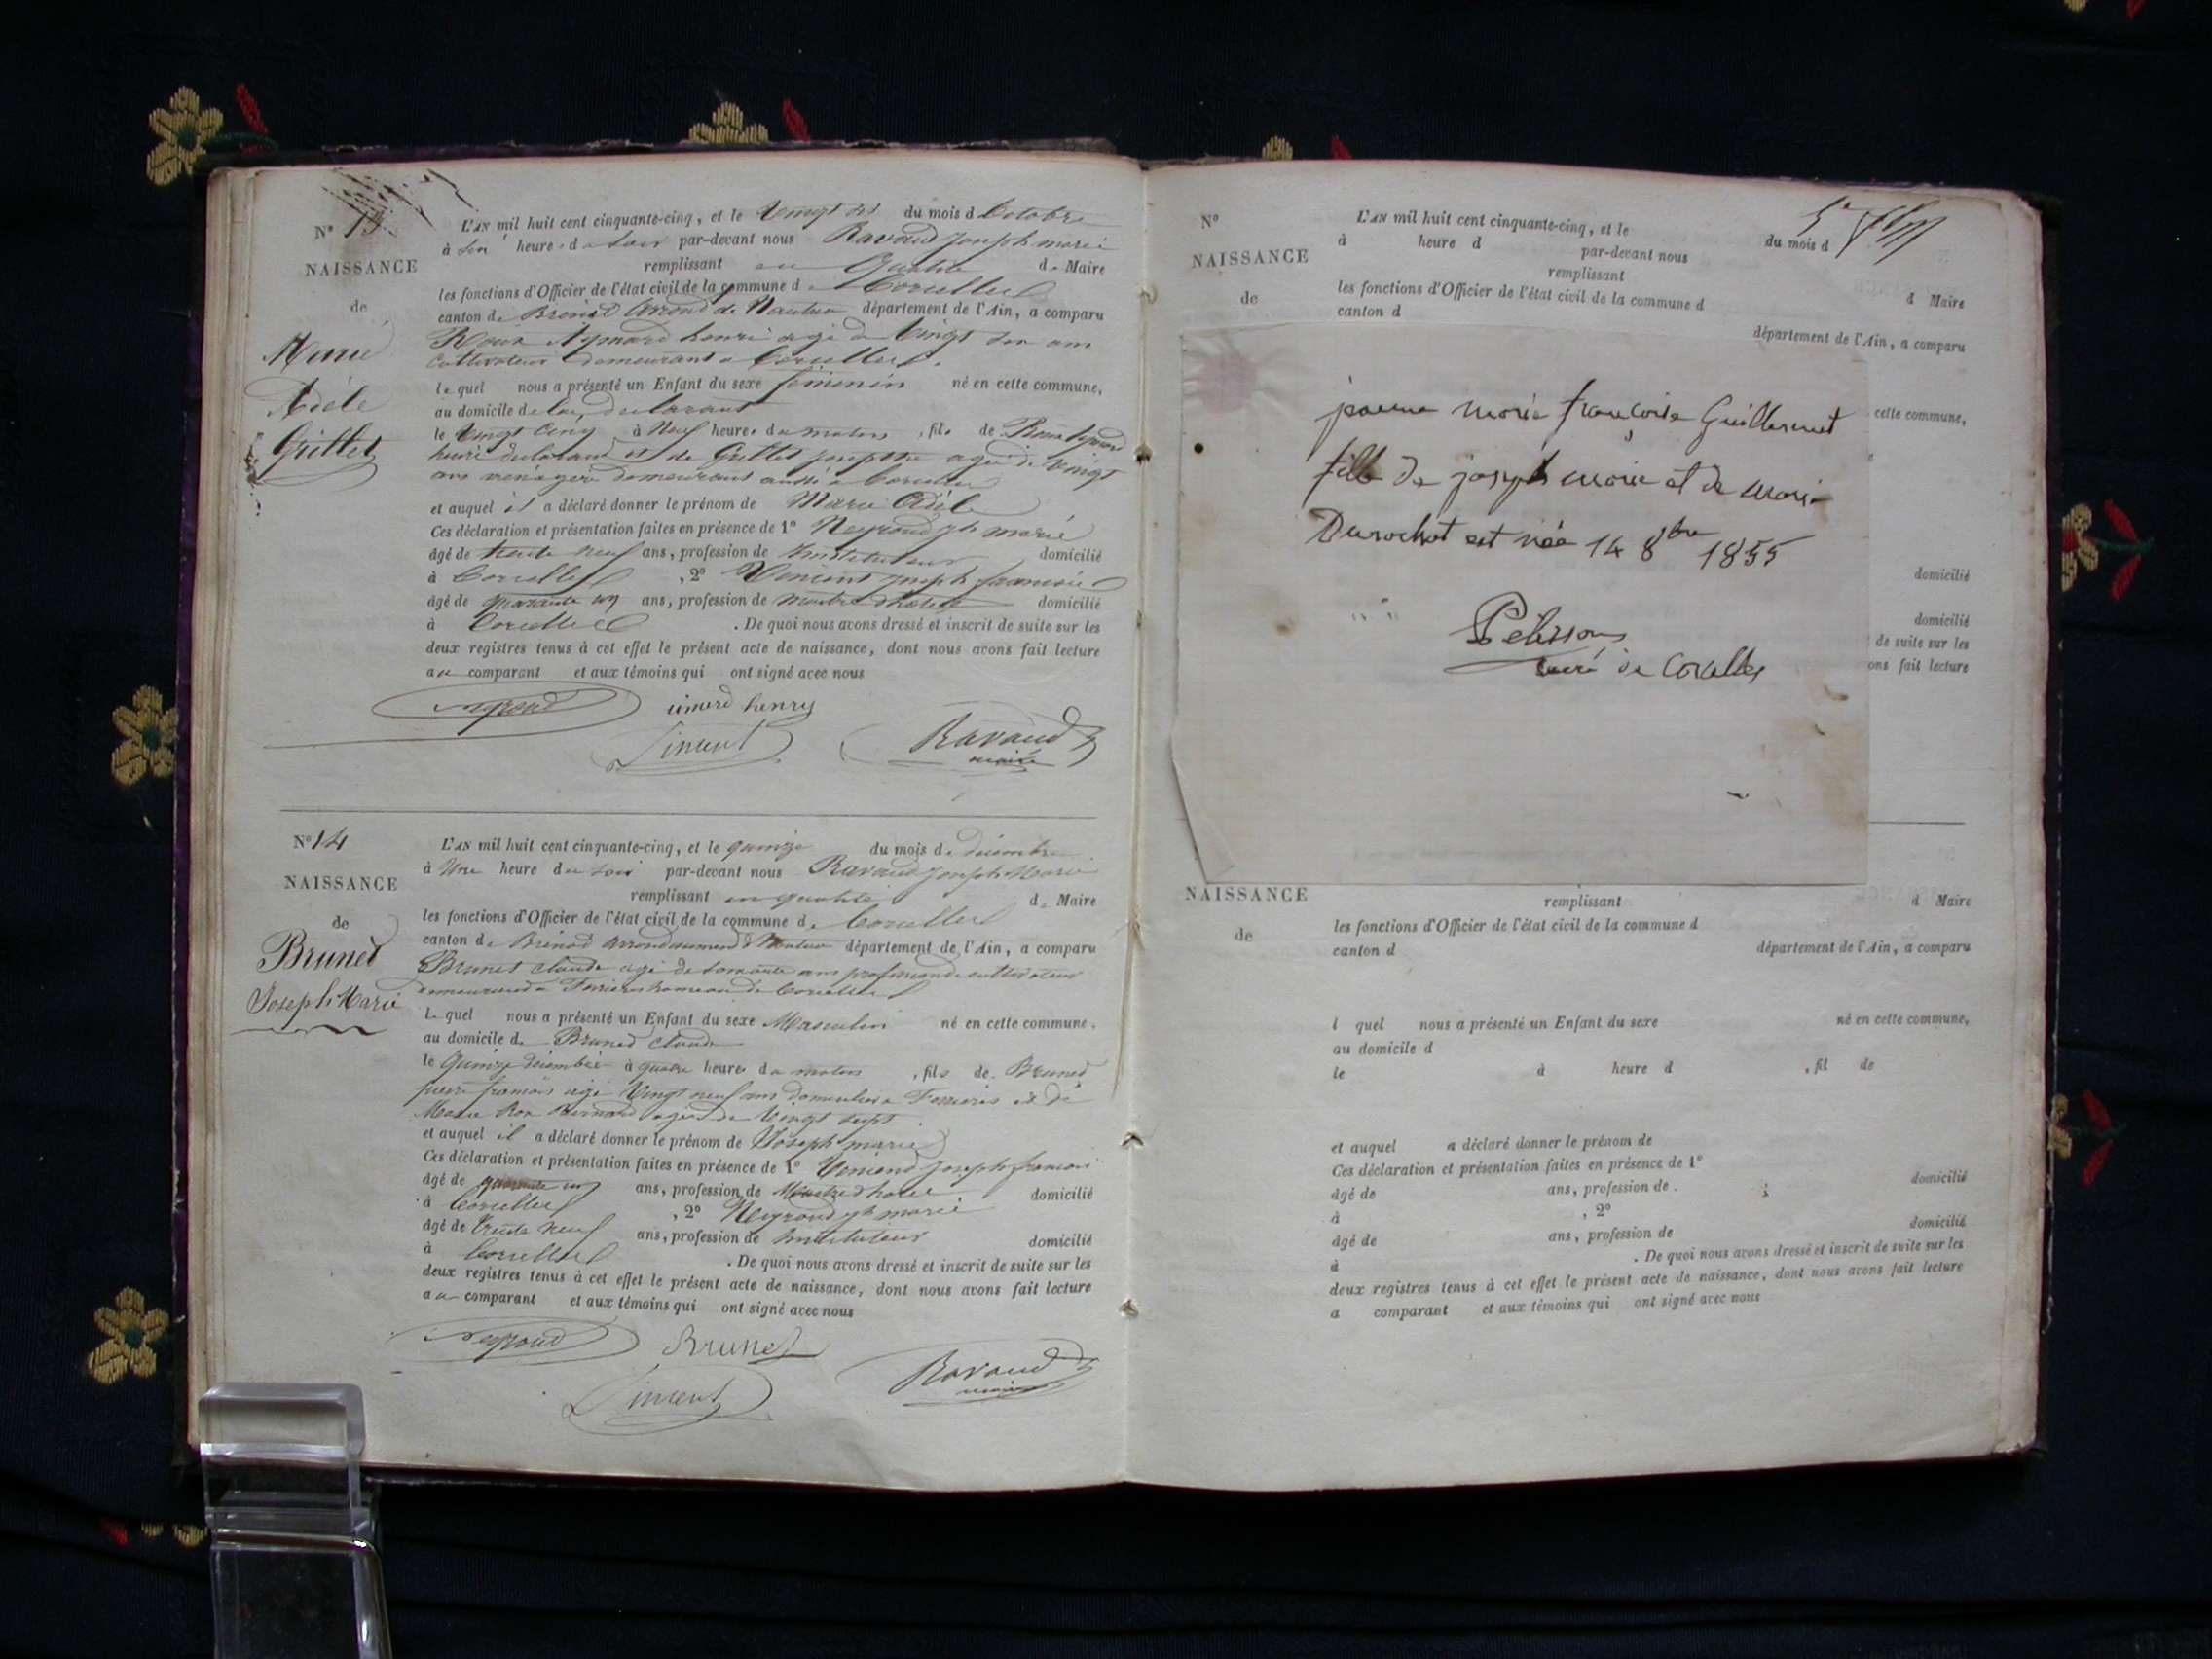 N° 13
NAISSANCE
de
Marie
Adèle
Grillet
L'AN mil huit cent cinquante-cinq, et le Vingt six du mois d'Octobre
à six heure du soir par-devant nous Ravaud Joseph marie
remplissant en Qualité de Maire
les fonctions d'Officier de l'état civil de la commune de Corcelles
canton de Brénod arrond de Nantua département de l'Ain, a comparu
Aymard henri agé de Vingt ans
cultivateur demeurant a Corcelles
le quel nous a présenté un Enfant du sexe féminin né en cette commune,
au domicile de lui déclarant
le Vingt cinq à Neuf heures du matin, fils de
henri déclarant et de Grillet josephte agée de Vingt
ans ménagère demeurant aussi à Corcelles
et auquel il a déclaré donner le prénom de Marie Adèle
Ces déclaration et présentation faites en présence de 1° Neyroud jh marie
âgé de trente neuf ans, profession de Instituteur domicilié
à Corcelles, 2° Vincent joseph françois
âgé de quarante un ans, profession de maitre d'hotel domicilié
à Corcelles. De quoi nous avons dressé et inscrit de suite sur les
deux registres tenus à cet effet le présent acte de naissance, dont nous avons fait lecture
au comparant et aux témoins qui ont signé avec nous
Neyroud imard henry
Vincent Ravaud
maire
N° 14
NAISSANCE
de
Brunet
Joseph Marie
L'AN mil huit cent cinquante-cinq, et le quinze du mois de décembre
à Une heure du soir par-devant nous Ravaud Joseph Marie
remplissant en qualité de Maire
les fonctions d'Officier de l'état civil de la commune de Corcelles
canton de Brénod arrondissement de Nantua département de l'Ain, a comparu
Brunet claude agé de soixante ans profession de cultivateur
demeurant a Ferrieres hameau de Corcelles
le quel nous a présenté un Enfant du sexe Masculin né en cette commune,
au domicile de Brunet claude
le Quinze décembre à quatre heures du matin, fils de Brunet
pierre françois agé Vingt neuf ans domicilié a Ferrieres et de
Marie Bernard agée de Vingt sept
et auquel il a déclaré donner le prénom de Joseph marie
Ces déclaration et présentation faites en présence de 1° Vincent Joseph francois
âgé de quarante un ans, profession de Maitre d'hotel domicilié
à Corcelles, 2° Neyroud jh marie
âgé de Trente Neuf ans, profession de Instituteur domicilié
à Corcelles. De quoi nous avons dressé et inscrit de suite sur les
deux registres tenus à cet effet le présent acte de naissance, dont nous avons fait lecture
au comparant et aux témoins qui ont signé avec nous
Neyroud Brunet
Vincent Ravaud
maire
N°
NAISSANCE
de
L'AN mil huit cent cinquante-cinq, et le du mois d
à heure d par-devant nous
remplissant d Maire
les fonctions d'Officier de l'état civil de la commune d
canton d département de l'Ain, a comparu
cette commune,
marie françoise Guillermet
fille de joseph marie et de marie
Durochat est née 14 8bre 1855
Pelisson
curé de Corcelles
domicilié
domicilié
de suite sur les
ons fait lecture
NAISSANCE
de
remplissant d Maire
les fonctions d'Officier de l'état civil de la commune d
canton d département de l'Ain, a comparu
l quel nous a présenté un Enfant du sexe né en cette commune,
au domicile d
le à heure d , fil de
et auquel a déclaré donner le prénom de
Ces déclaration et présentation faites en présence de 1°
âgé de ans, profession de domicilié
à , 2°
âgé de ans, profession de domicilié
à . De quoi nous avons dressé et inscrit de suite sur les
deux registres tenus à cet effet le présent acte de naissance, dont nous avons fait lecture
a comparant et aux témoins qui ont signé avec nous